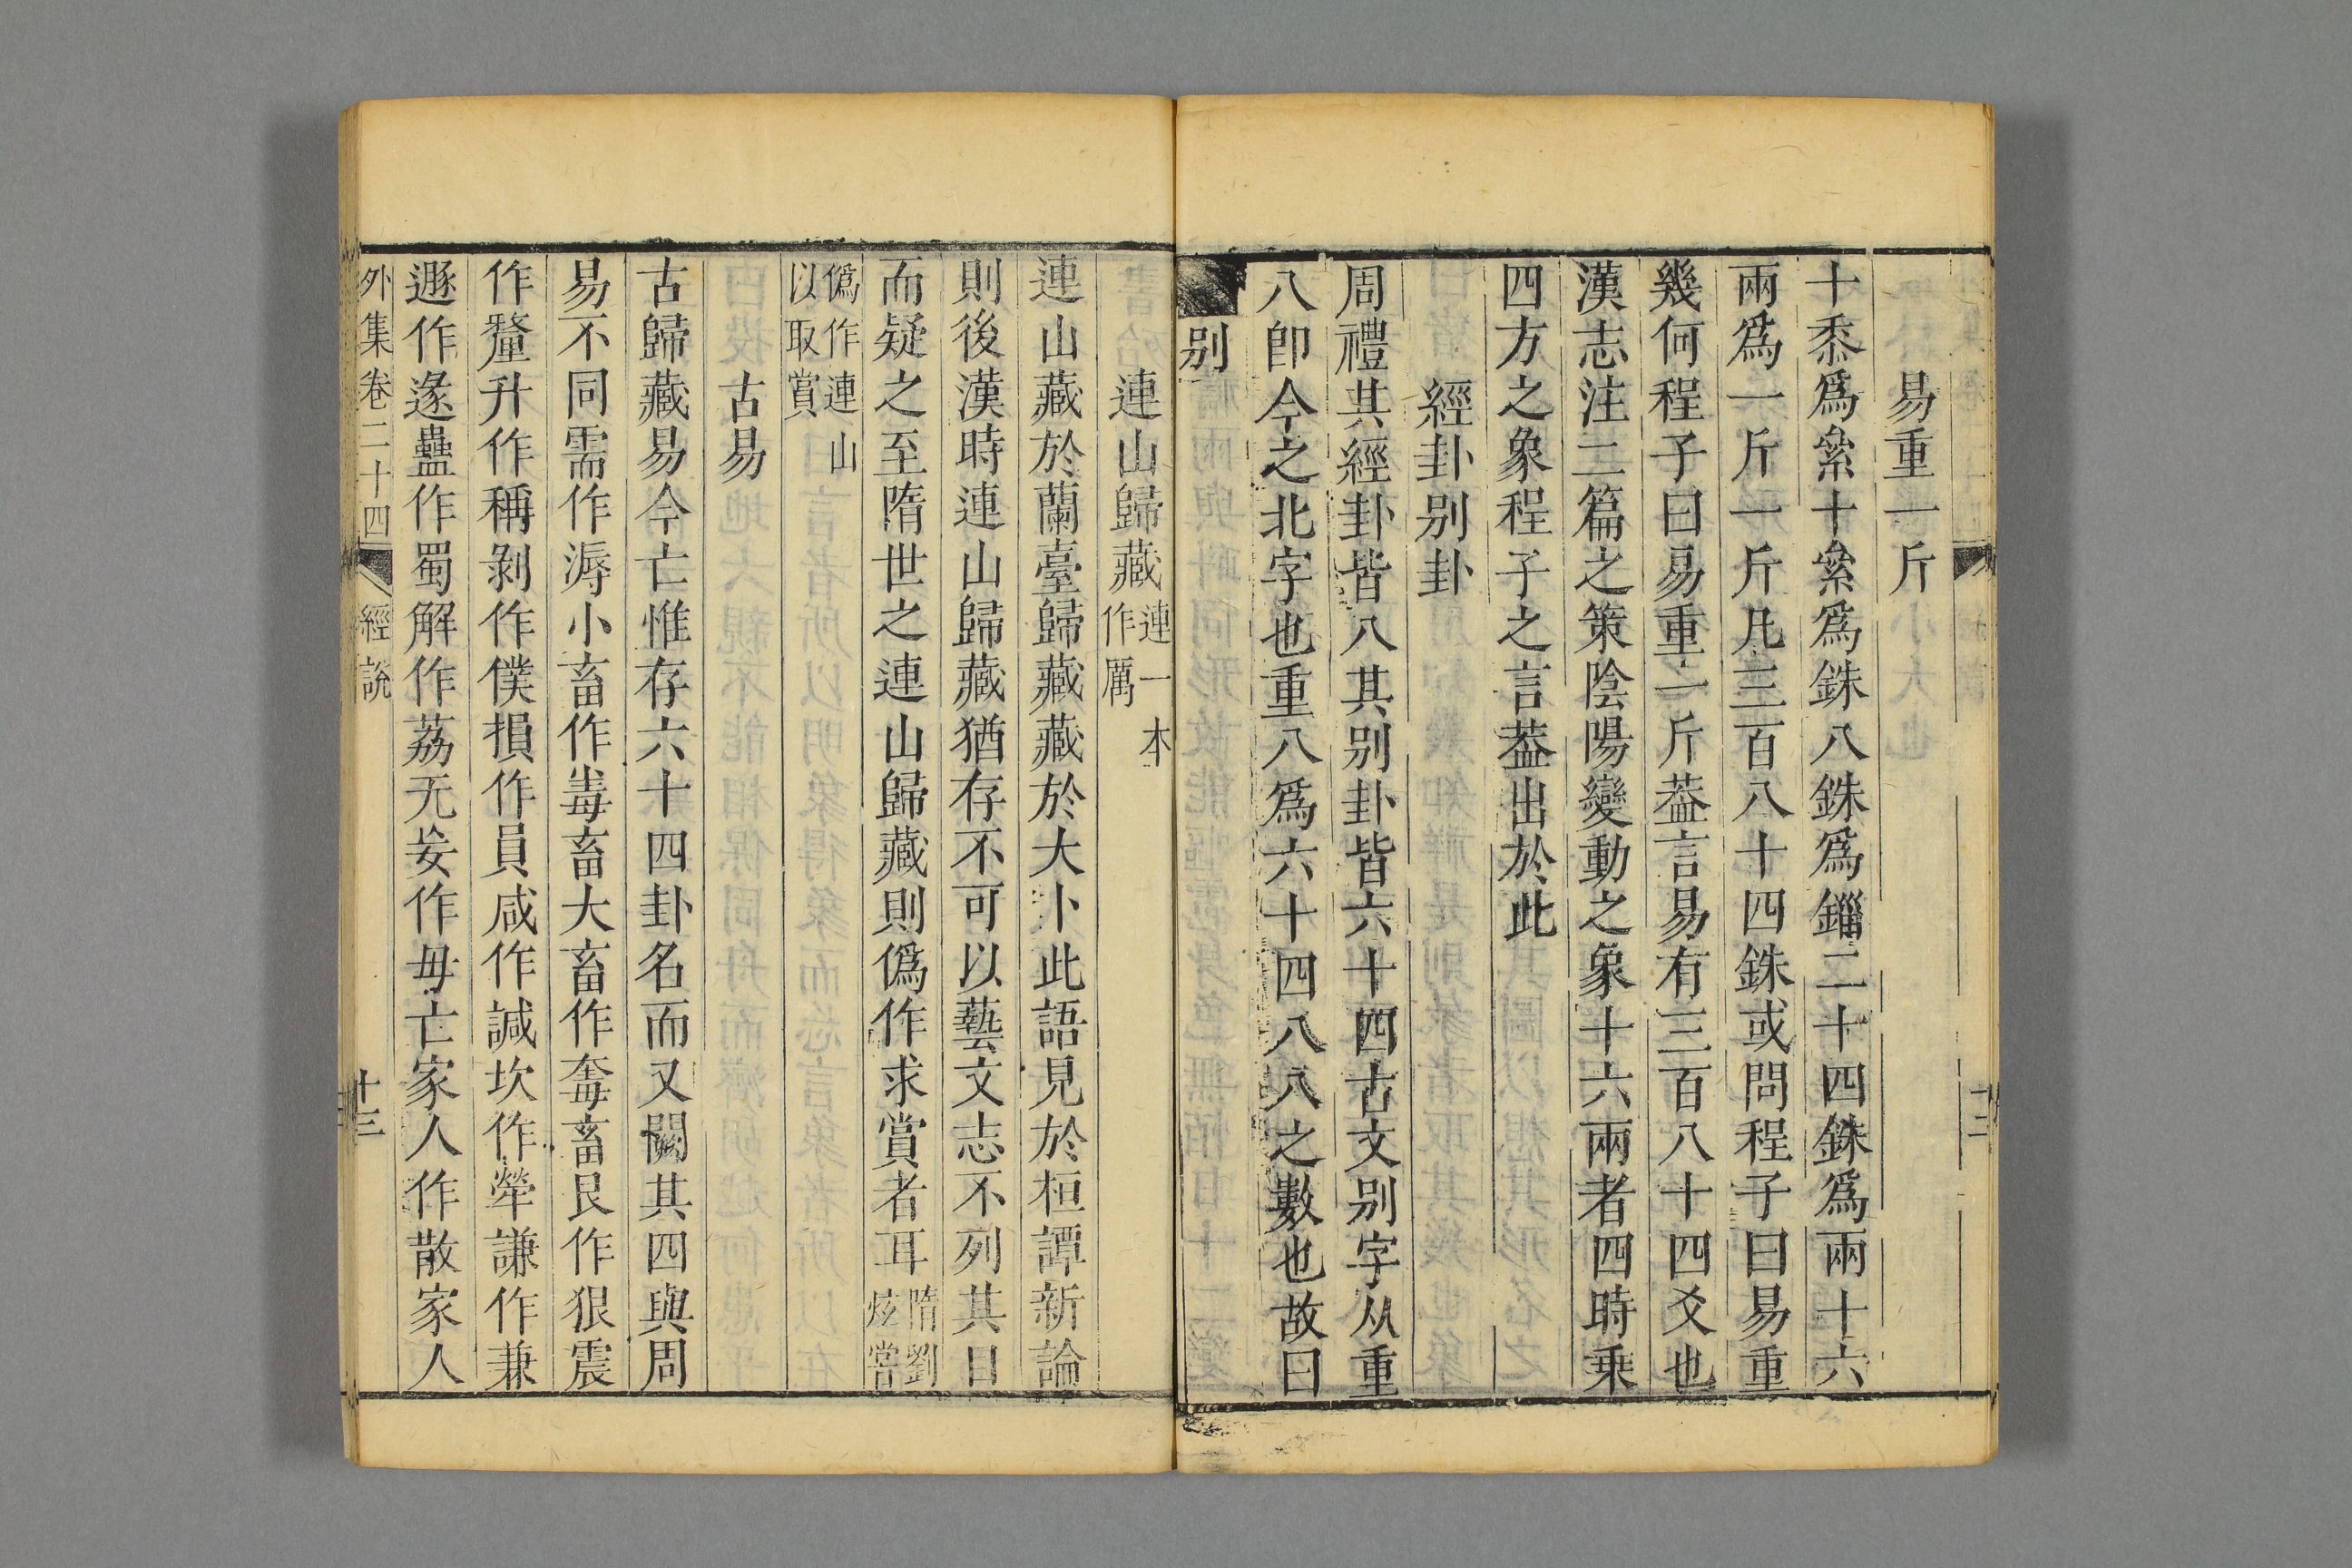 易重一斤
十黍爲絫十絫爲銖八銖爲錙二十四銖爲兩十六
兩爲一斤一斤凡三百八十四銖或問程子曰易重
幾何程子曰易重一斤葢言易有三百八十四爻也
漢志注二篇之策陰陽變動之象十六兩者四時乗
四方之象程子之言葢出於此
經卦别卦
周禮其經卦皆八其别卦皆六十四古文别字从重
八卽今之北字也重八爲六十四八八之數也故曰
别
連山歸藏連一本作厲
連山藏於蘭臺歸藏藏於大卜此語見於桓譚新論
則後漢時連山歸藏猶存不可以藝文志不列其目
而疑之至隋世之連山歸藏則僞作求賞者耳隋劉炫嘗
僞作連山以取賞
古易
古歸藏易今亡惟存六十四卦名而又闕其四與周
易不同需作溽小畜作𡏇畜大畜作奫畜艮作狠震
作釐升作稱剥作僕損作員咸作諴坎作犖謙作兼
遯作遂蠱作蜀解作荔无妄作毋亡家人作散家人
外集卷二十四
經說
十三